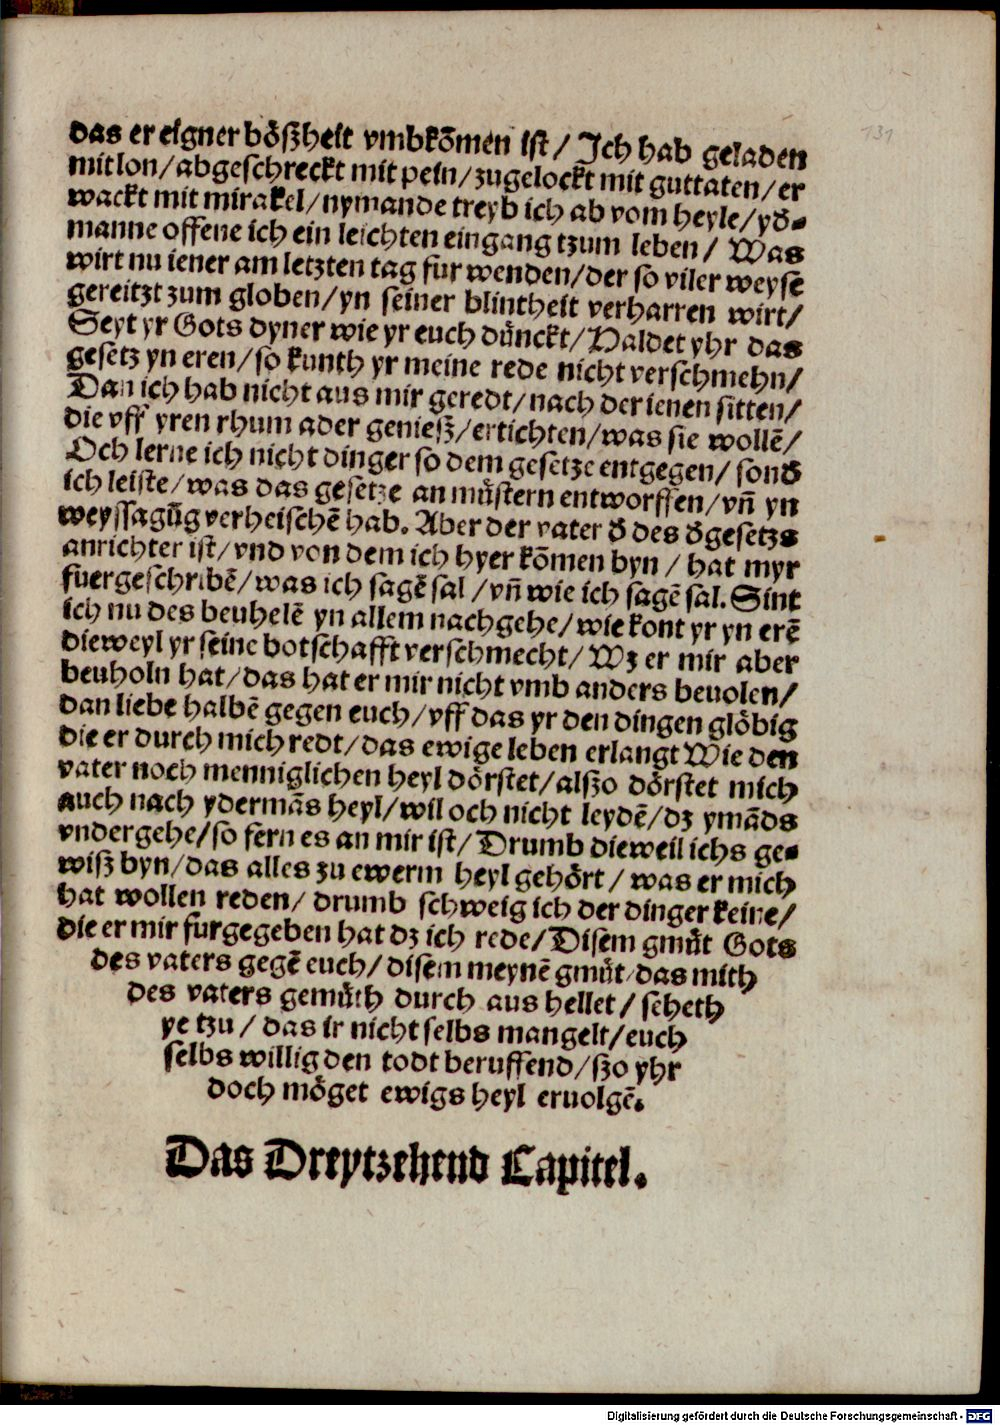 131
das er eigner bößheit vmbkōmen ist/ Ich hab geladen
mit lon/abgeschreckt mit pein/zugelockt mit guttaten/er
wackt mit mirakel/nymande treyb ich ab vom heyle/ydᷣ-
manne offene ich ein leichten eingang tzum leben/ Was
wirt nu iener am letzten tag fur wenden/der so viler weyse
gereitzt zum globen/yn seiner blintheit verharren wirt/
Seyt yr Gots dyner wie yr euch dünckt/Haldet yhr das
gesetz yn eren/so kunth yr meine rede nicht verschmehn/
Dan ich hab nicht aus mir geredt/nach der ienen sitten/
die vff yren rhum ader genieß/ertichten/was sie wollē/
Och lerne ich nicht dinger so dem gesetze entgegen/ sondᷣ
ich leiste/was das gesetze an müstern entworffen/vñ yn
weyssagūg verheischē hab. Aber der vater dᷣ des dᷣgesetzs
anrichter ist/vnd von dem ich hyer kōmen byn/ hat myr
fuergeschribē/was ich sagē sal/vñ wie ich sagē sal. Sint
ich nu des beuhelē yn allem nachgehe/wie kont yr yn erē
dieweyl yr seine botschafft verschmecht/Wz er mir aber
beuholn hat/das hat er mir nicht vmb anders beuolen/
dan liebe halbē gegen euch/vff das yr den dingen glöbig
die er durch mich redt/das ewige leben erlangt Wie den
vater noch menniglichen heyl dörstet/alßo dörstet mich
auch nach ydermās heyl/wil och nicht leydē/dz ymāds
vndergehe/so fern es an mir ist/Drumb dieweil ichs ge-
wiß byn/das alles zu ewerm heyl gehört/ was er mich
hat wollen reden/ drumb schweig ich der dinger keine/
die er mir furgegeben hat dz ich rede/Disem gmüt Gots
des vaters gegē euch/disem meynē gmüt/das mith
des vaters gemüth durch aus hellet/ seheth
ye tzu/ das ir nicht selbs mangelt/euch
selbs willig den todt beruffend/ßo yhr
doch möget ewigs heyl eruolgē.
Das Dreytzehend Capitel.
Digitalisierung gefördert durch die Deutsche Forschungsgemeinschaft - DFG